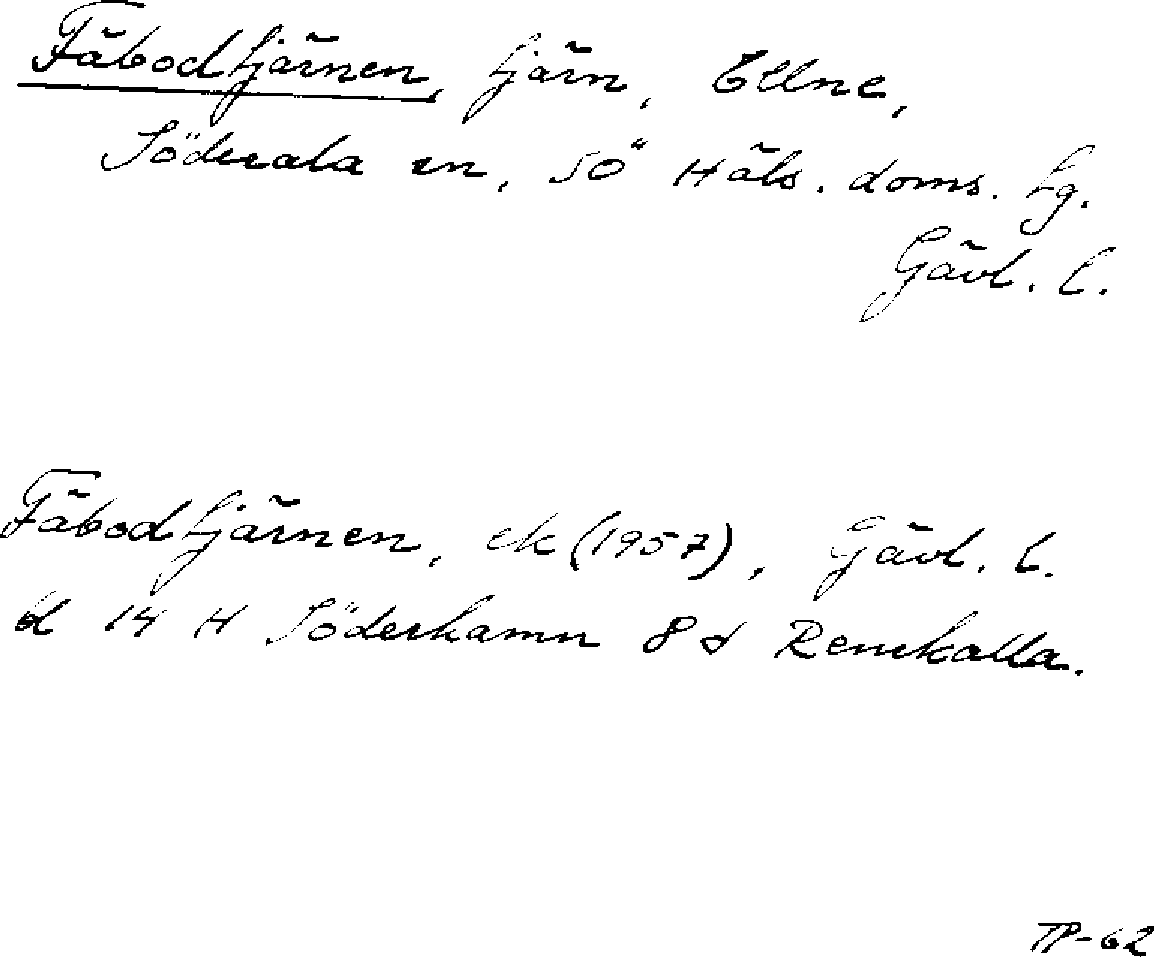 Fäbodtjärnen, tjärn, Ellne,
Söderala sn, SÖ Häls. doms. tg.
Gävl. l.
Fäbodtjärnen, ek (1957), Gävl. l.
bl 14 H Söderhamn 8 d Remskalla.
TP-62